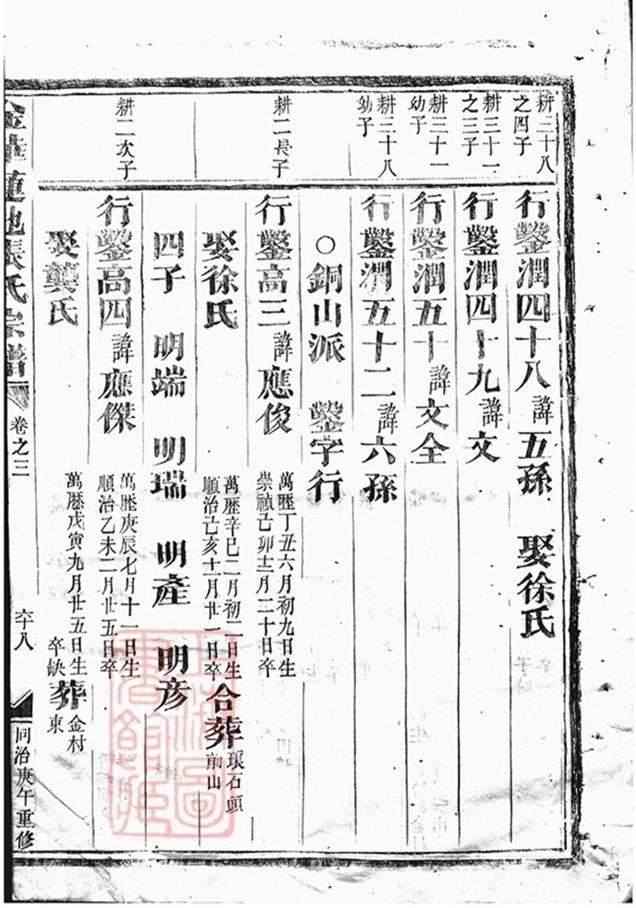 耕三十八
之四子
行鑿潤四十八 諱 五孫 娶徐氏
耕三十一
之三子
行鑿潤四十九 諱 文
耕三十一
幼子
行鑿潤五十 諱 文全
耕三十八
幼子
行鑿潤五十二 諱 六孫
○銅山派 鑿字行
耕二長子
行鑿高三 諱 應俊
萬歷丁丑六月初九日生
崇禎己卯十二月二十日卒
娶徐氏
萬歷辛巳二月初二日生
順治己亥十一月廿一日卒
合葬
琅石頭
前山
四子 明端 明瑞 明產 明彥
耕二次子
行鑿高四 諱 應傑
萬歷庚辰七月十一日生
順治乙未二月廿五日卒
娶龔氏
萬歷戊寅九月廿五日生
卒缺
葬
金村
東
蓮池張氏宗譜
卷之三
六十八
同治庚午重修